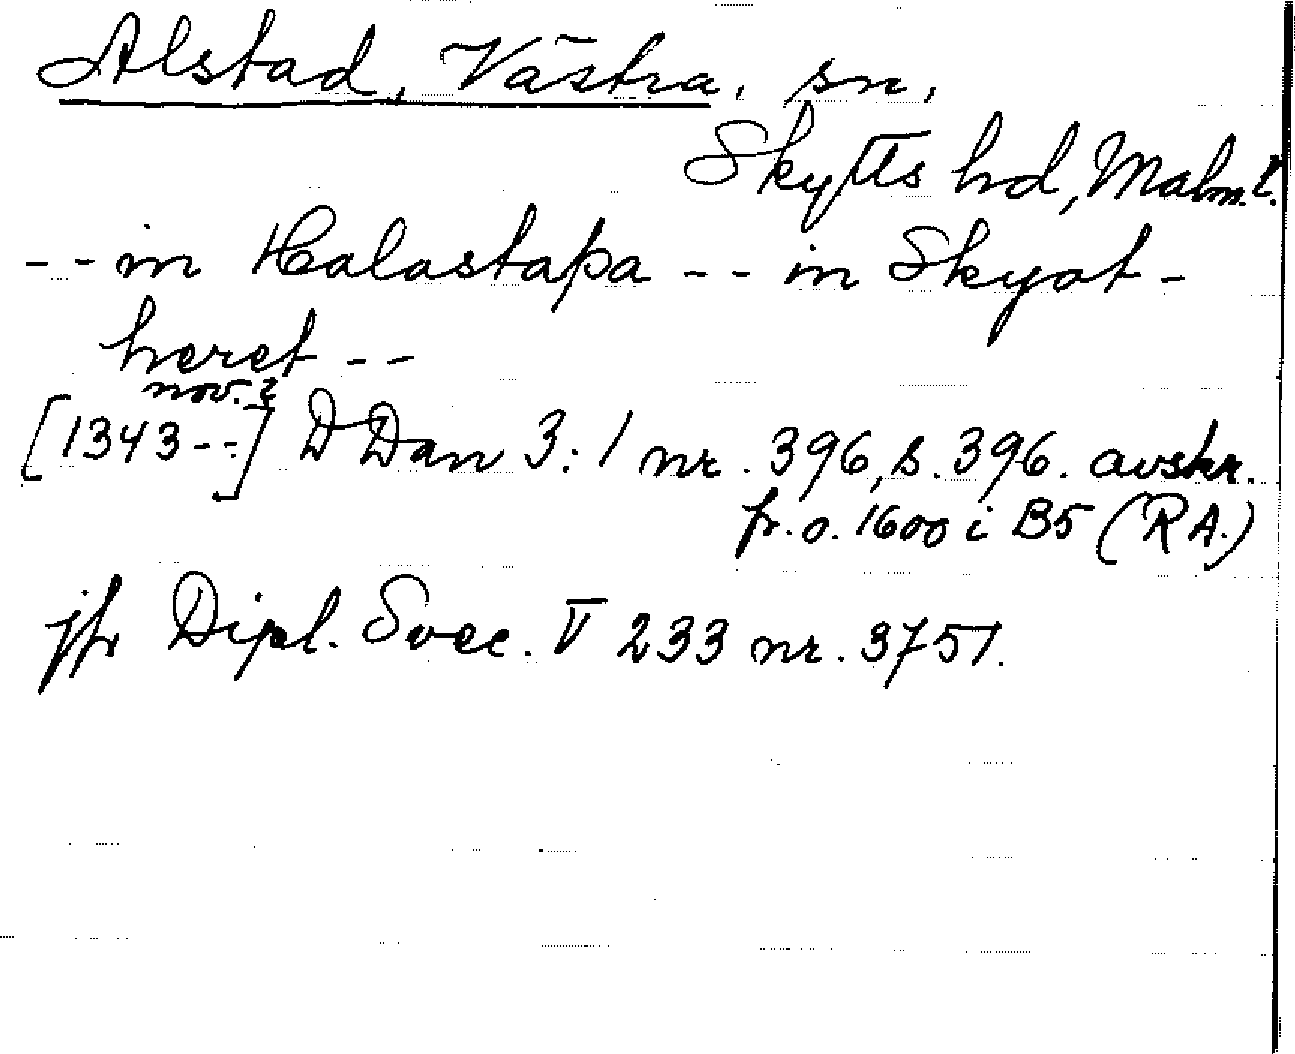 Alstad, Västra, sn,
Skytts hd, Malm.l.
-- in Halastapa -- in Skyot-
heret --
nov.?
[1343--] D Dan 3:1 nr. 396, s. 396. avskr.
fr. o. 1600 i B5 (RA.)
jfr Dipl. Svec. V 233 nr. 3751.